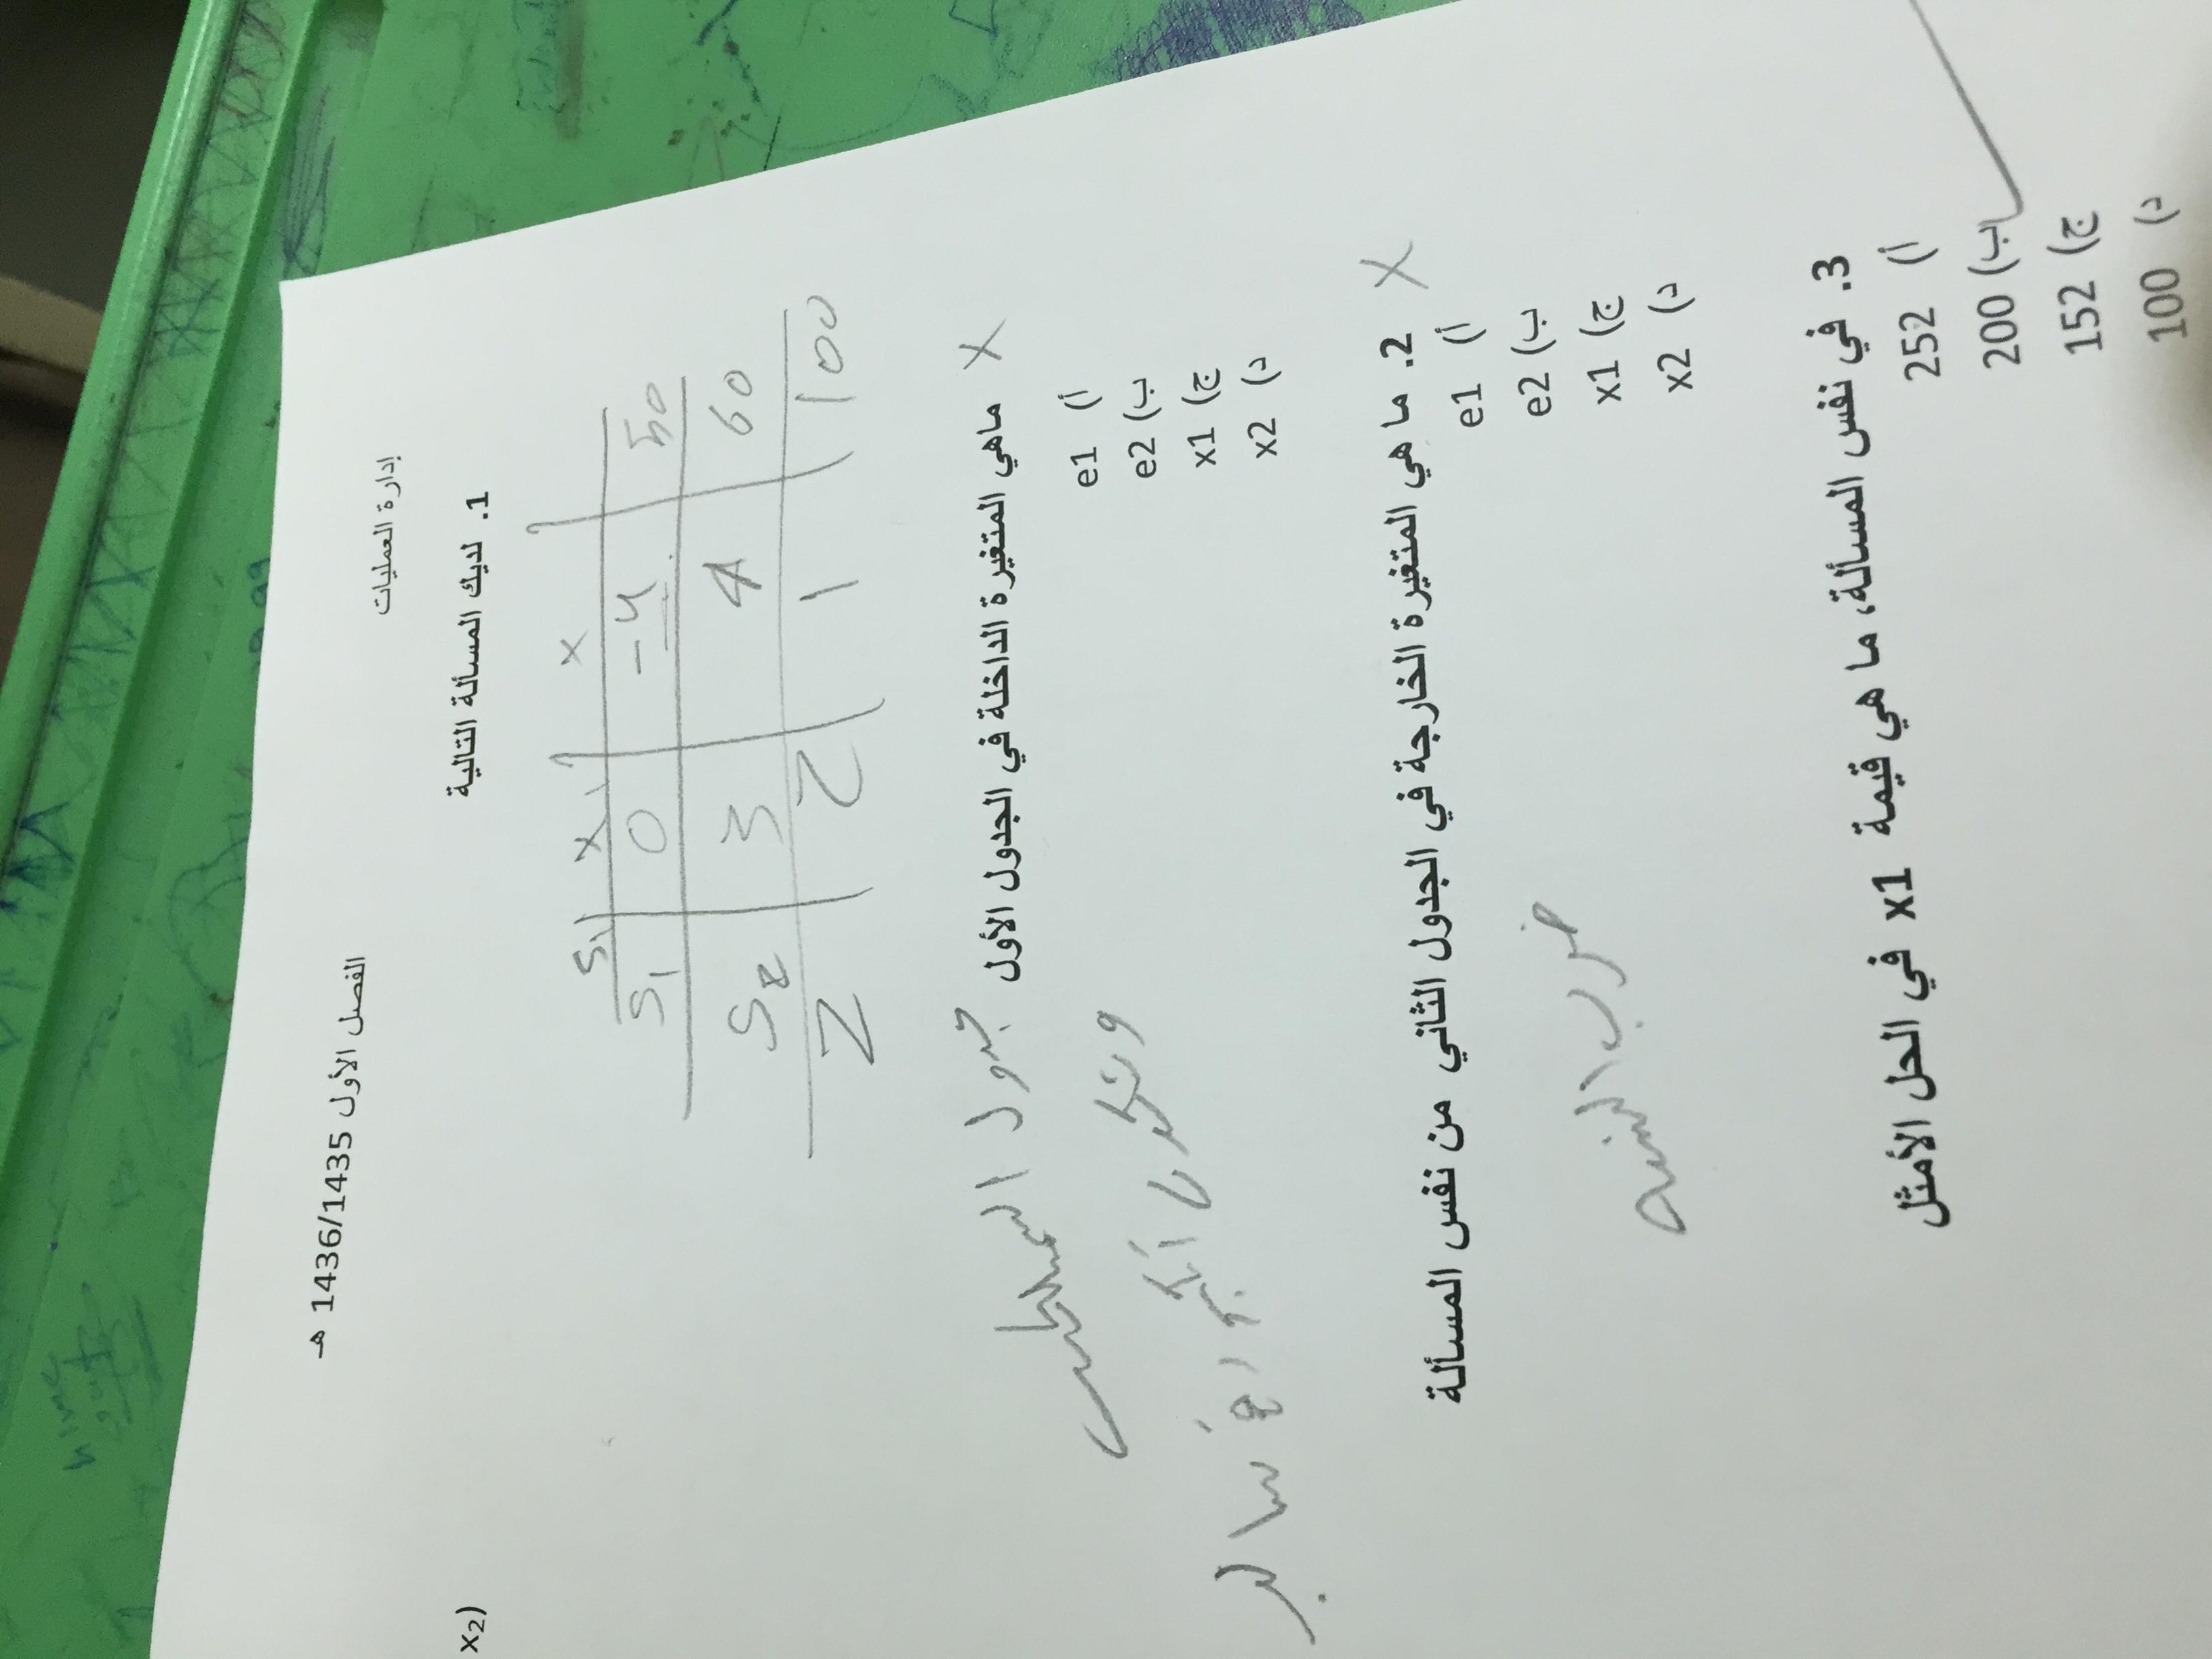 إدارة العمليات
الفصل الأول 1436/1435 هـ
1. لديك المسألة التالية
x₂)
S₁ X₁ X
S₁ 0 -4 50
S₂ 3 4 60
Z 2 1 100
ماهي المتغيرة الداخلة في الجدول الأول X
جدول
أ) e1
ب) e2
ج) x1
د) x2
2. ما هي المتغيرة الخارجة في الجدول الثاني من نفس المسألة X
أ) e1
ب) e2
ج) x1
د) x2
3. في نفس المسألة، ما هي قيمة x1 في الحل الأمثل
أ) 252
ب) 200
ج) 152
د) 100